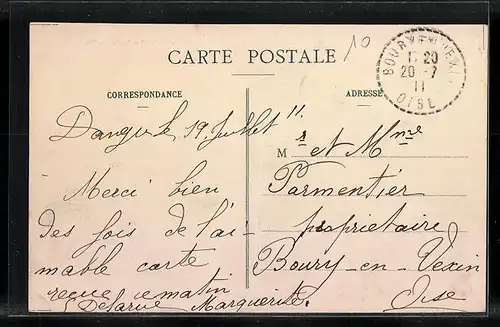 CARTE POSTALE
10
CORRESPONDANCE
ADRESSE
BOURY-EN-VEXIN
20
20 -7
11
OISE
Dangu le 19 Juillet 11.
Merci bien
des fois de l'ai-
mable carte
reçue ce matin
Delarue Marguerite.
Mr et Mme
Parmentier
propriétaire
Boury-en-Vexin
Oise